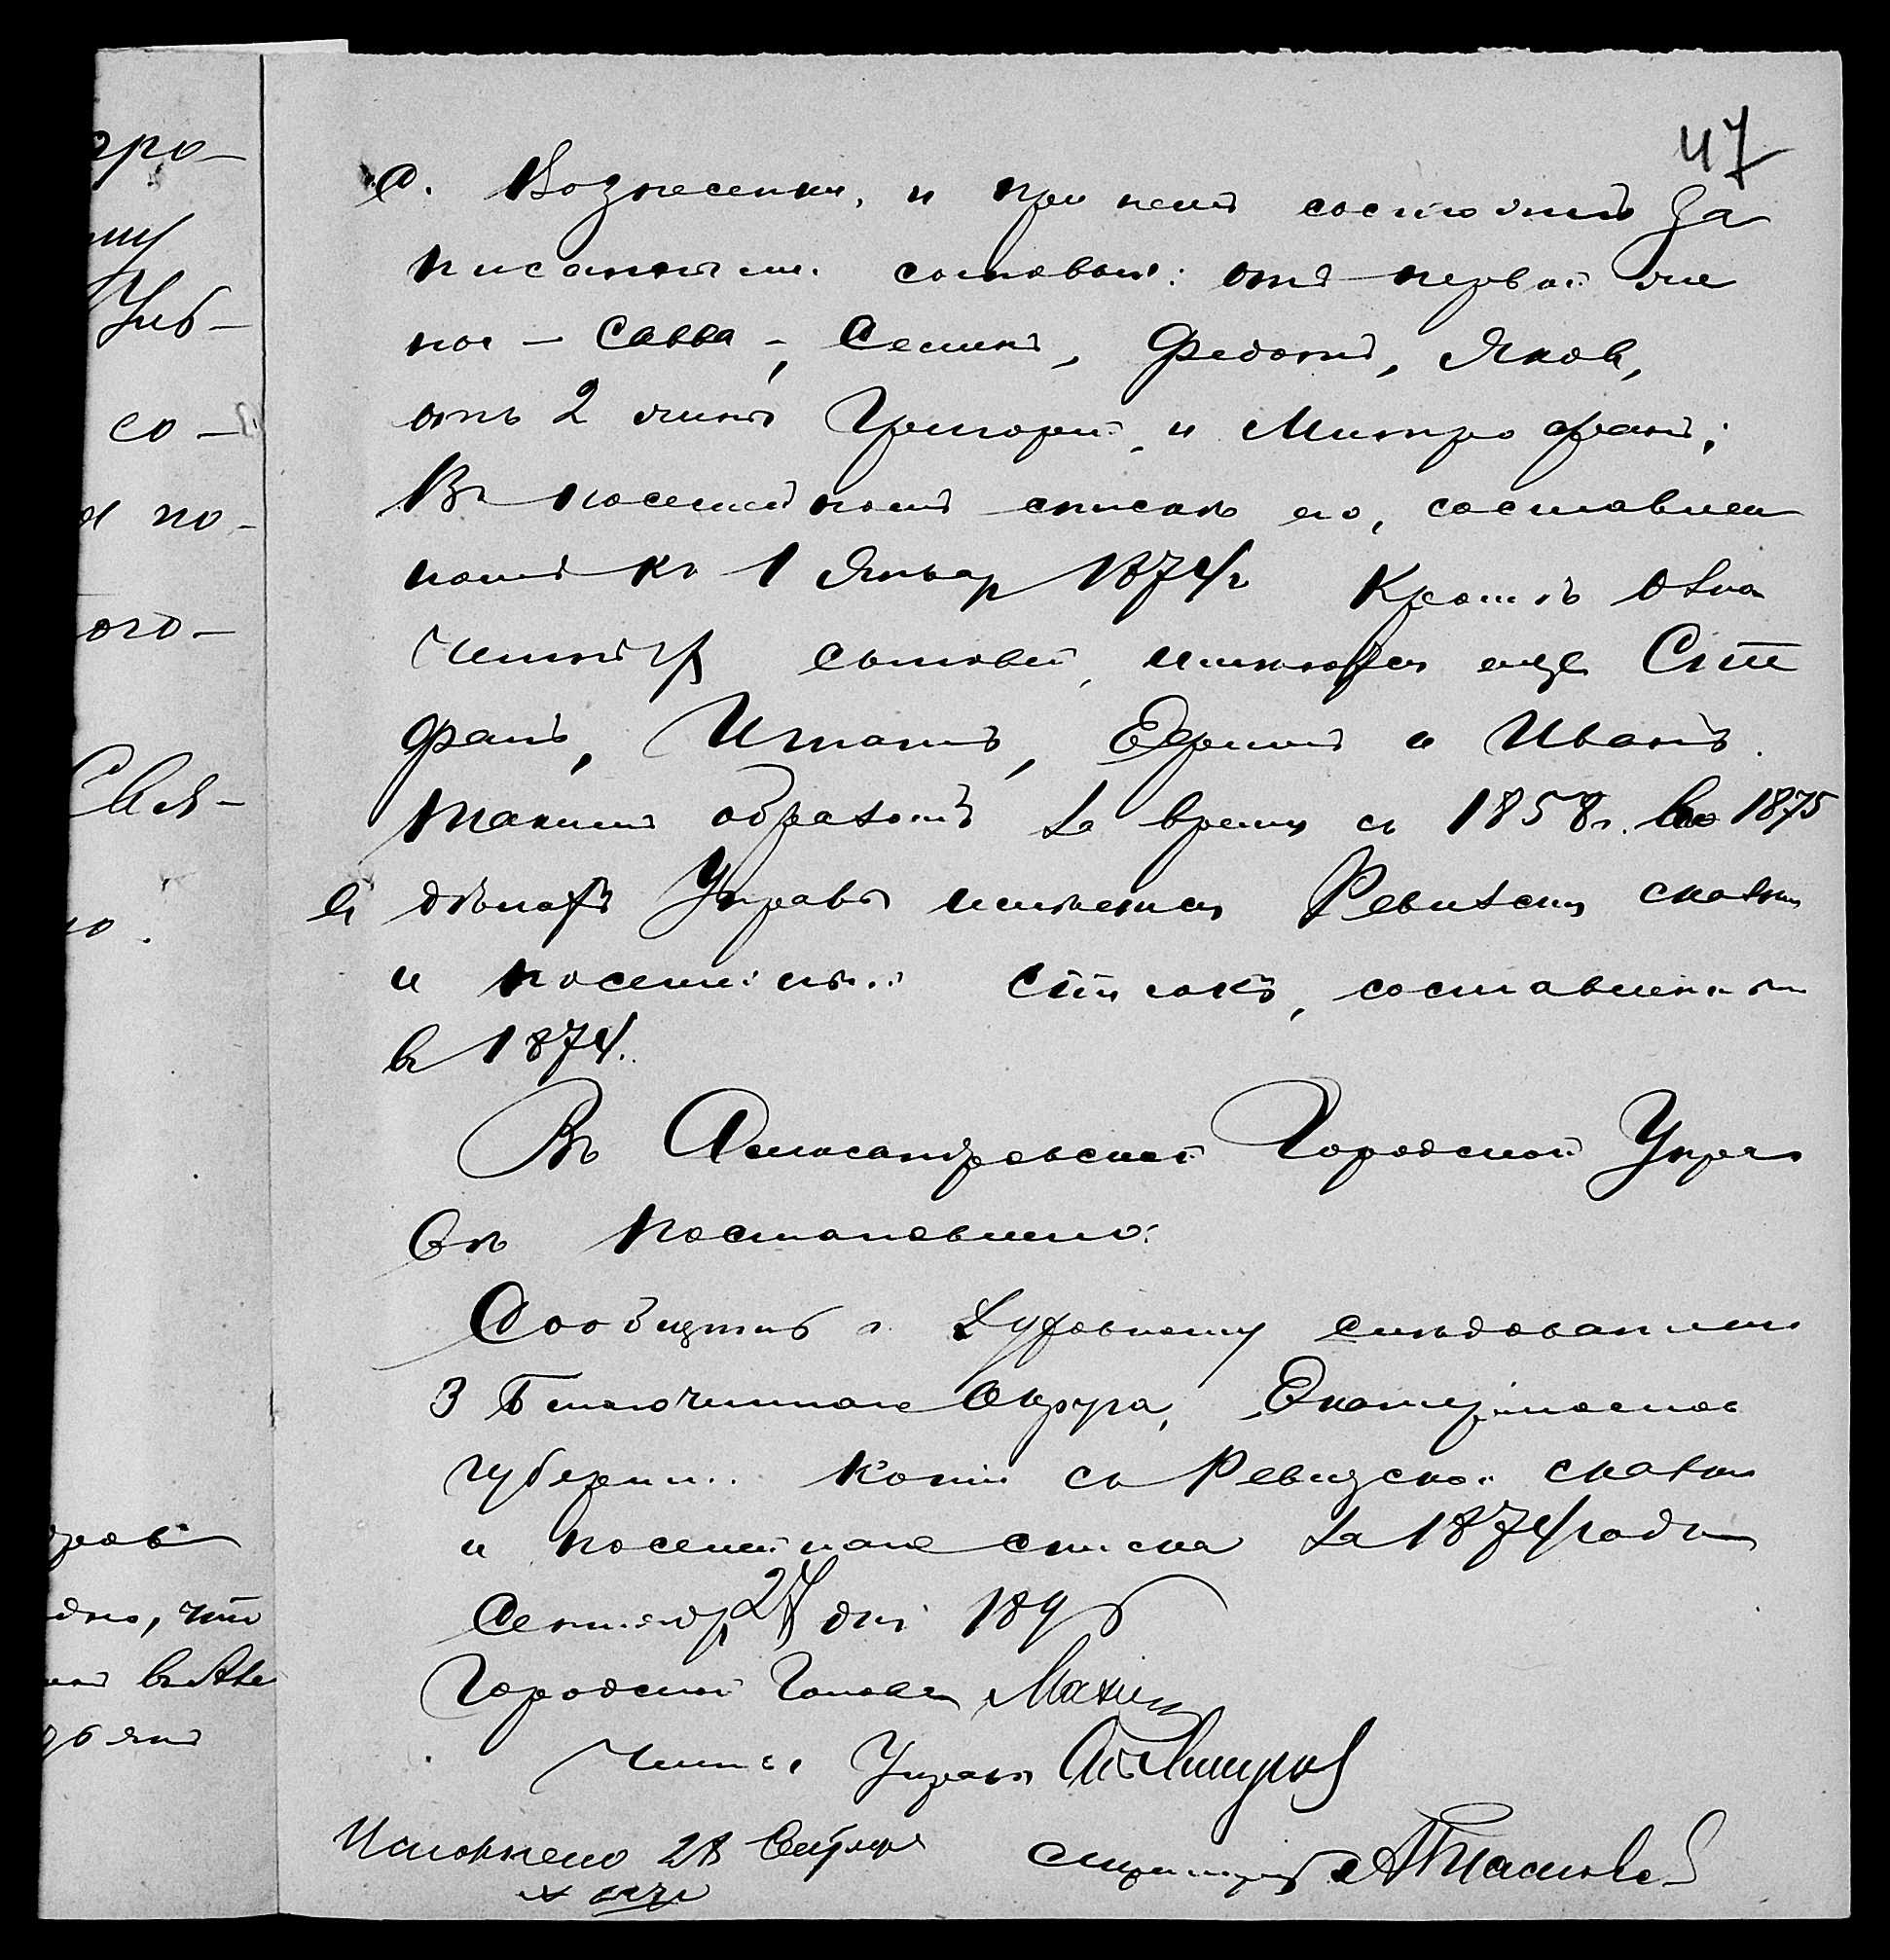 47
с. Вознесенки, и при немъ состоятъ за
писанными сыновья: отъ первой же
ны – Савва –, Семенъ, Федотъ, Яков,
отъ 2 жены Григорій, и Митрофанъ;
Въ посемейномъ списке его, составлен
номъ къ 1 Январ 1874 г Кромѣ озна
ченныхъ сыновей, имѣются еще Сте
фанъ, Игнатъ, Ефимъ и Иванъ.
Такимъ образомъ за время съ 1858 г. по 1875
въ дѣлахъ Управы имеются Ревизския сказки
и посемейный списокъ, составленный
въ 1874.
Въ Александровской Городской Упра
вѣ постановлено:
Сообщить г. Духовному следователю
3 Благочинного Округа, Екатеринослав
губерніи копіи съ Ревизской сказки
и посемейного списка за 1874 годъ
Сентября 27 дня 1896
Городской Голова
Члены Управы
Исполнено 28 Сентября
Секретарь
оро-
со-
по-
ого-
Свя-
но.
дно, что